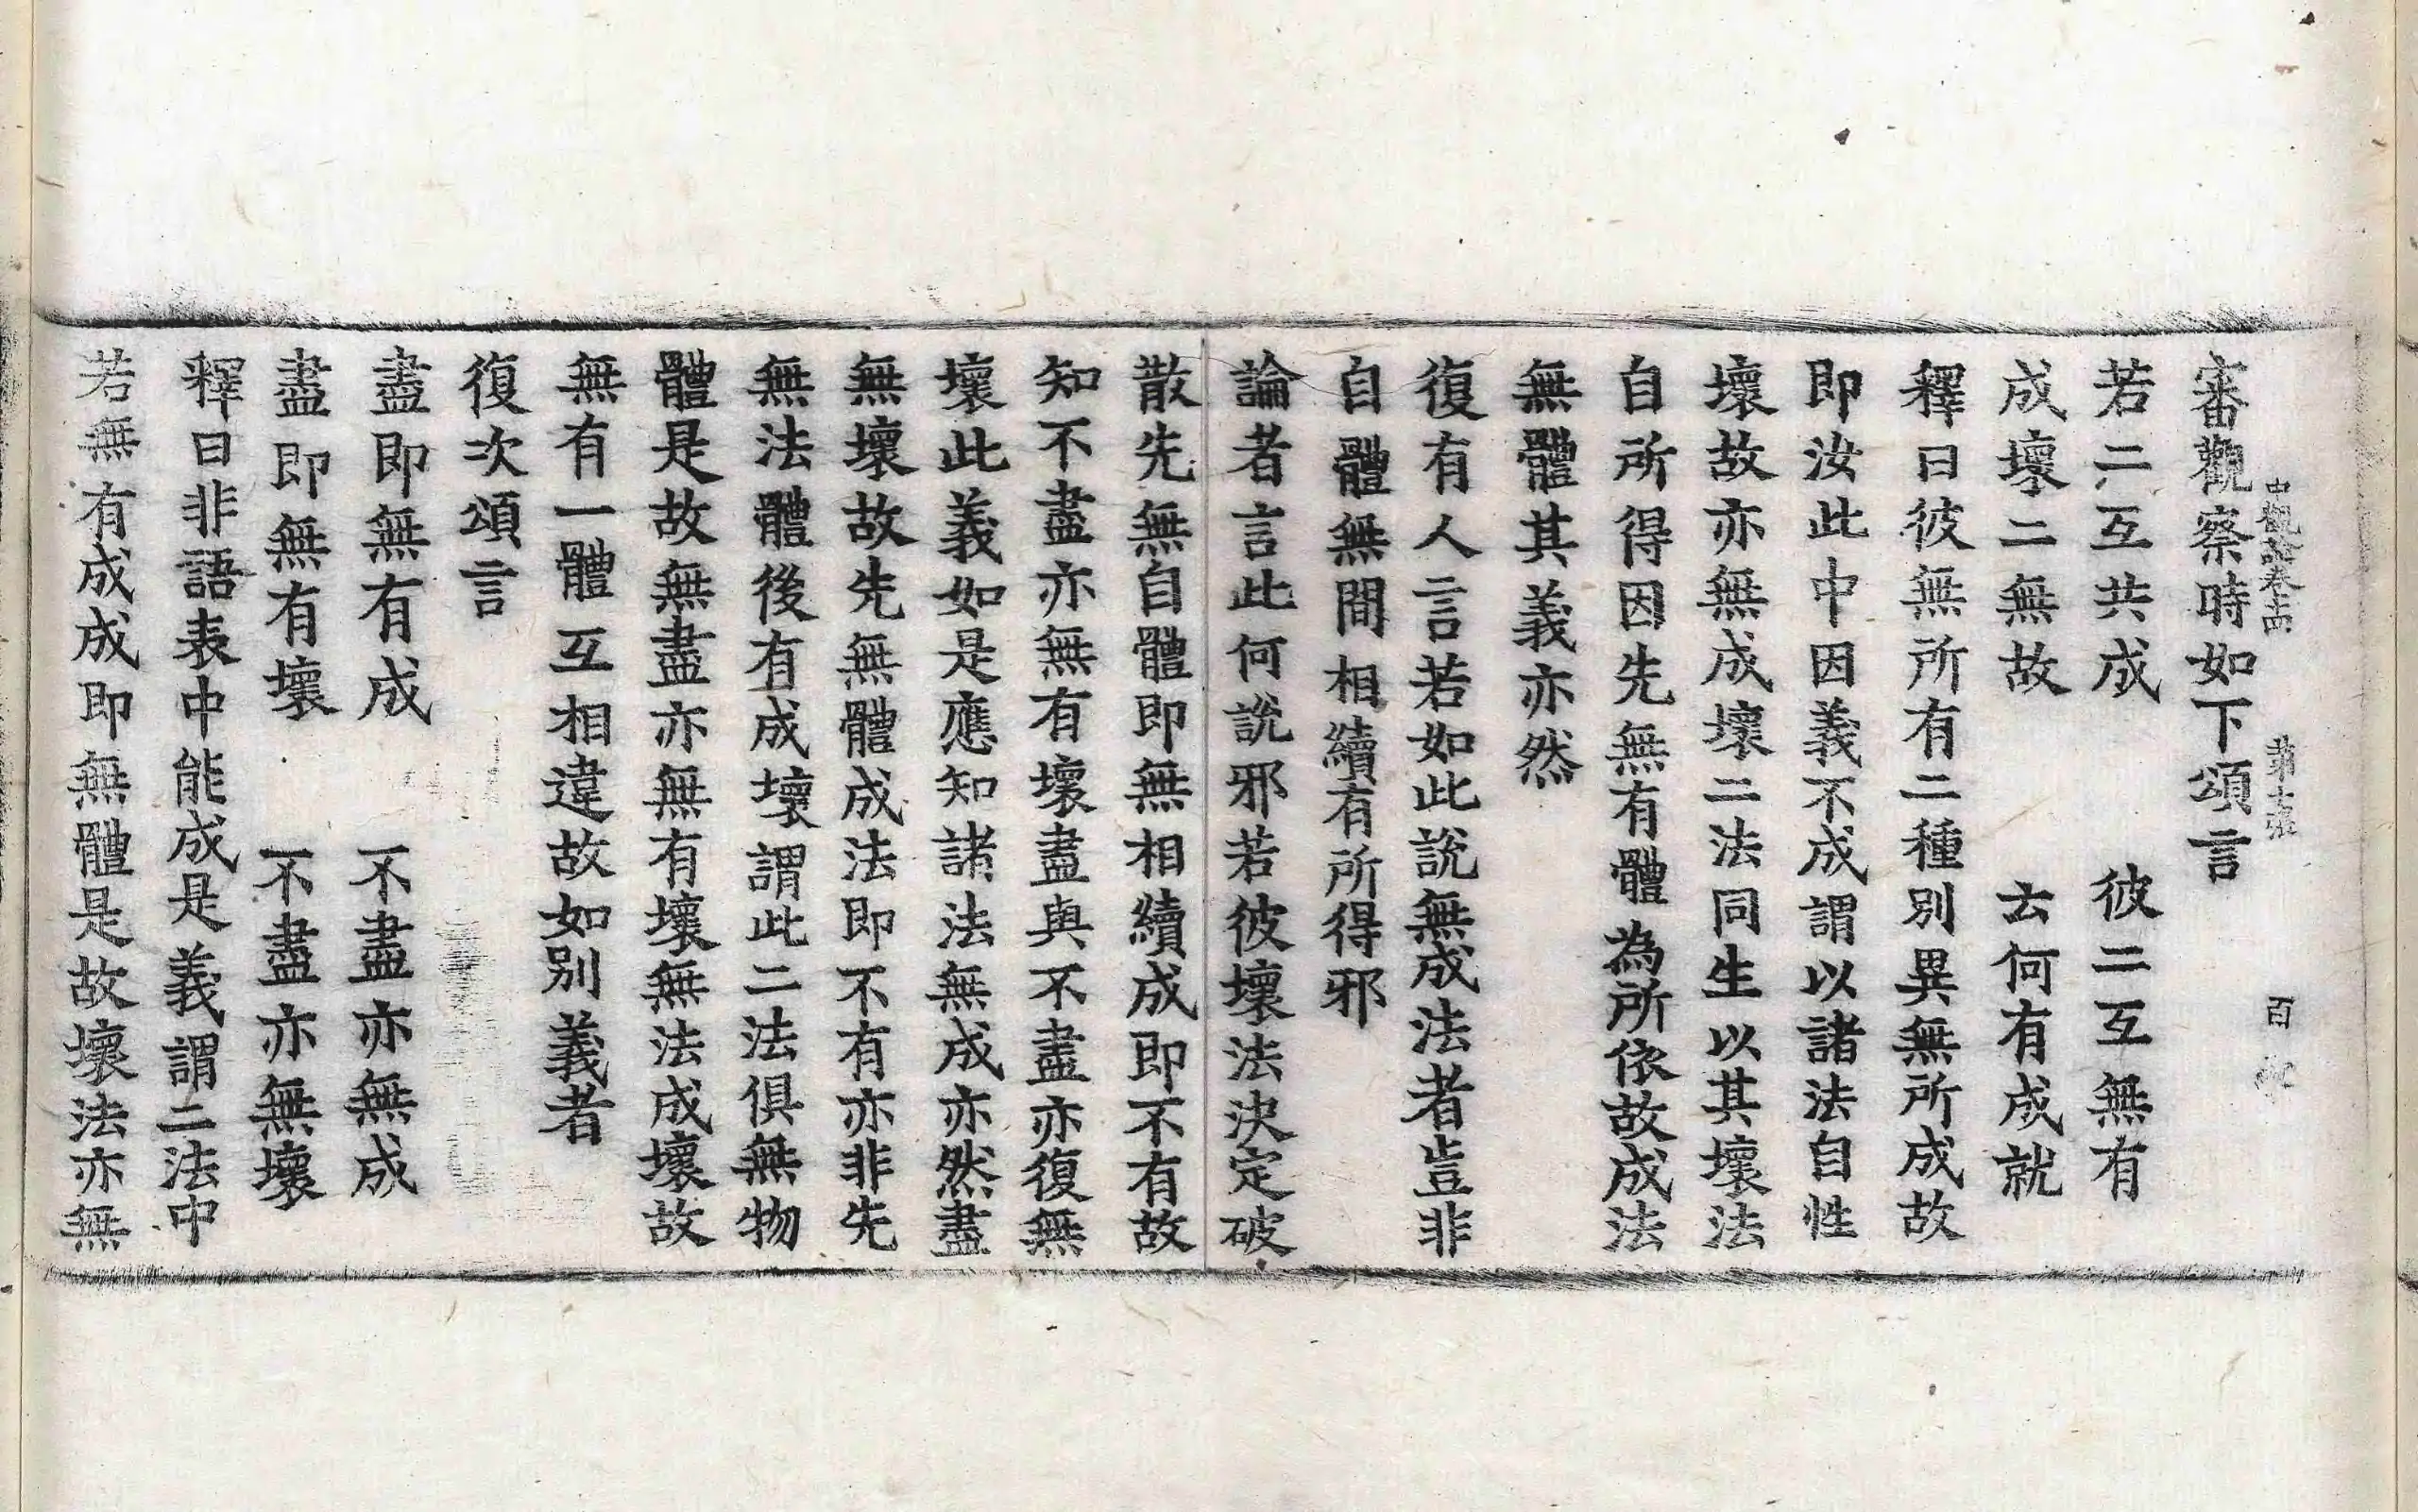 中觀論卷十四　第十張　百
審觀察時如下頌言
若二互共成　彼二互無有
成壞二無故　云何有成就
釋曰彼無所有二種別異無所成故
即汝此中因義不成謂以諸法自性
壞故亦無成壞二法同生以其壞法
自所得因先無有體為所依故成法
無體其義亦然
復有人言若如此說無成法者豈非
自體無間相續有所得邪
論者言此何說邪若彼壞法決定破
散先無自體即無相續成即不有故
知不盡亦無有壞盡與不盡亦復無
壞此義如是應知諸法無成亦然盡
無壞故先無體成法即不有亦非先
無法體後有成壞謂此二法俱無物
體是故無盡亦無有壞無法成壞故
無有一體互相違故如別義者
復次頌言
盡即無有成　不盡亦無成
盡即無有壞　不盡亦無壞
釋曰非語表中能成是義謂二法中
若無有成成即無體是故壞法亦無